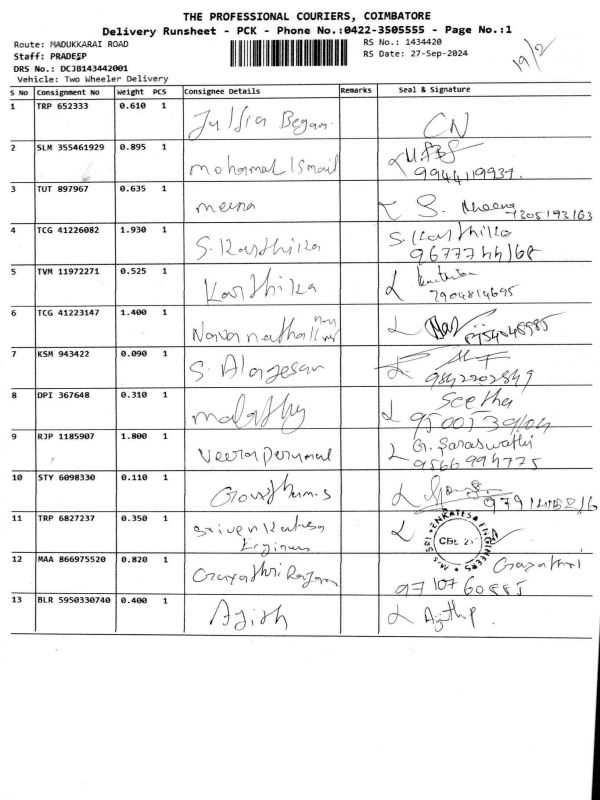 THE PROFESSIONAL COURIERS, COIMBATORE
Delivery Runsheet - PCK - Phone No.:0422-3505555 - Page No.:1
Route: MADUKKARAI ROAD
RS No.: 1434420
Staff: PRADEEP
RS Date: 27-Sep-2024
19/2
DRS No.: DCJB143442001
Vehicle: Two Wheeler Delivery
S No Consignment No Weight PCS Consignee Details Remarks Seal & Signature
1 TRP 652333 0.610 1 Julfia Begam CN
2 SLM 355461929 0.895 1 mohamad Ismail
9944119937
3 TUT 897967 0.635 1 meena S. Meena
7305193163
4 TCG 41226082 1.930 1 S. Karthika S. Karthika
9677744168
5 TVM 11972271 0.525 1 Karthika
7904814695
6 TCG 41223147 1.400 1
8754048985
7 KSM 943422 0.090 1 S. Alagesan
9842202849
8 DPI 367648 0.310 1 malathy Seetha
9500539104
9 RJP 1185907 1.800 1 Veeraperumal G. Saraswathi
9566994775
10 STY 6098330 0.110 1 Gowtham.s
11 TRP 6827237 0.350 1 Srivenkatesa
M/s SRI VENKATESA ENGINEERS
CBE
12 MAA 866975520 0.820 1 Gayathri Gayathri
9710760885
13 BLR 5950330740 0.400 1 Ajith Ajith P